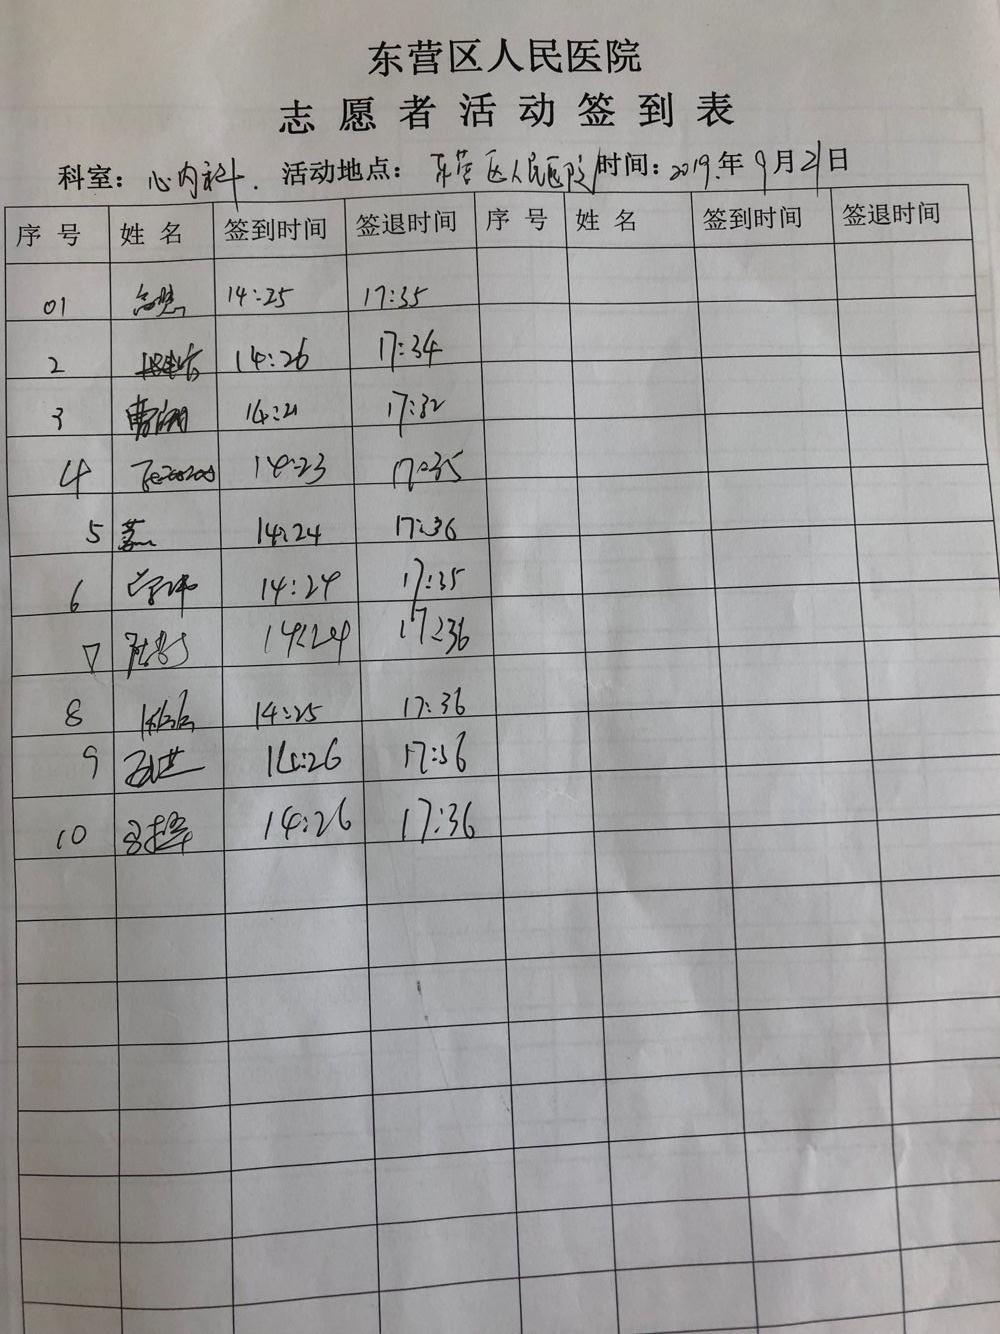 东营区人民医院
志愿者活动签到表
科室：心内科. 活动地点：东营区人民医院 时间：2019.年9月21日
序号 姓名 签到时间 签退时间 序号 姓名 签到时间 签退时间
01 14:25 17:35
2 14:26 17:34
3 14:21 17:32
4 14:23 17:35
5 14:24 17:36
6 14:24 17:35
7 14:24 17:36
8 14:25 17:36
9 14:26 17:36
10 14:26 17:36